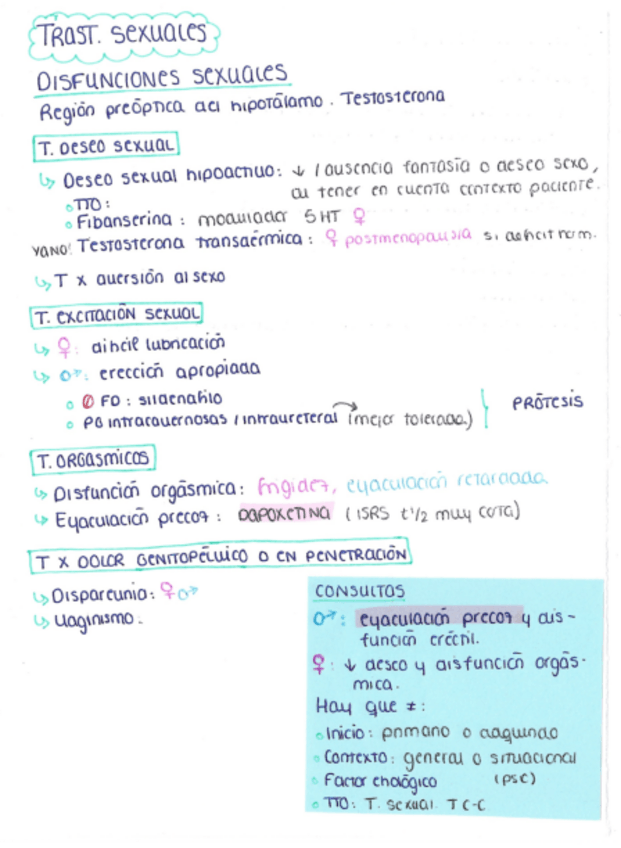 TRAST. SEXUALES
DISFUNCIONES SEXUALES
Región preóptica del hipotálamo. Testosterona
T. DESEO SEXUAL
↳ Deseo sexual hipoactivo: ↓ / ausencia fantasía o deseo sexo,
al tener en cuenta contexto paciente.
∘ TTO:
∘ Fibanserina: modulador 5HT ♀
YANO! Testosterona transdérmica: ♀ postmenopausia si deficit horm.
↳ T x aversión al sexo
T. EXCITACIÓN SEXUAL
↳ ♀: difícil lubricación
↳ ♂: erección apropiada
∘ ⊘ FD: sildenafilo
∘ PG intracavernosas / intraureteral (mejor tolerada.) } PRÓTESIS
T. ORGÁSMICOS
↳ Disfunción orgásmica: frigidez, eyaculación retardada
↳ Eyaculación precoz: DAPOXETINA (ISRS t1/2 muy corta)
T X DOLOR GENITOPÉLVICO O EN PENETRACIÓN
↳ Dispareunia: ♀♂
↳ Vaginismo.
CONSULTAS
♂: eyaculación precoz y dis-
función eréctil.
♀: ↓ deseo y disfunción orgás-
mica.
Hay que ≠:
∘ Inicio: primario o adquirido
∘ Contexto: general o situacional
∘ Factor etiológico (psc)
∘ TTO: T. sexual. TC-C